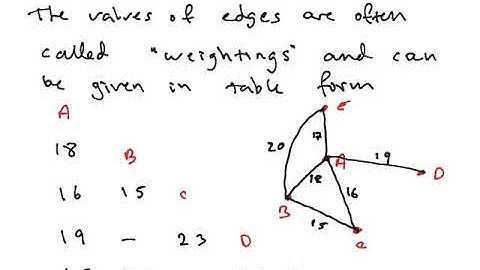 The values of edges are often
called "weightings" and can
be given in table form
A
18 B
16 15 C
19 - 23 D
E
17
20
A
19
D
18
16
B
15
C